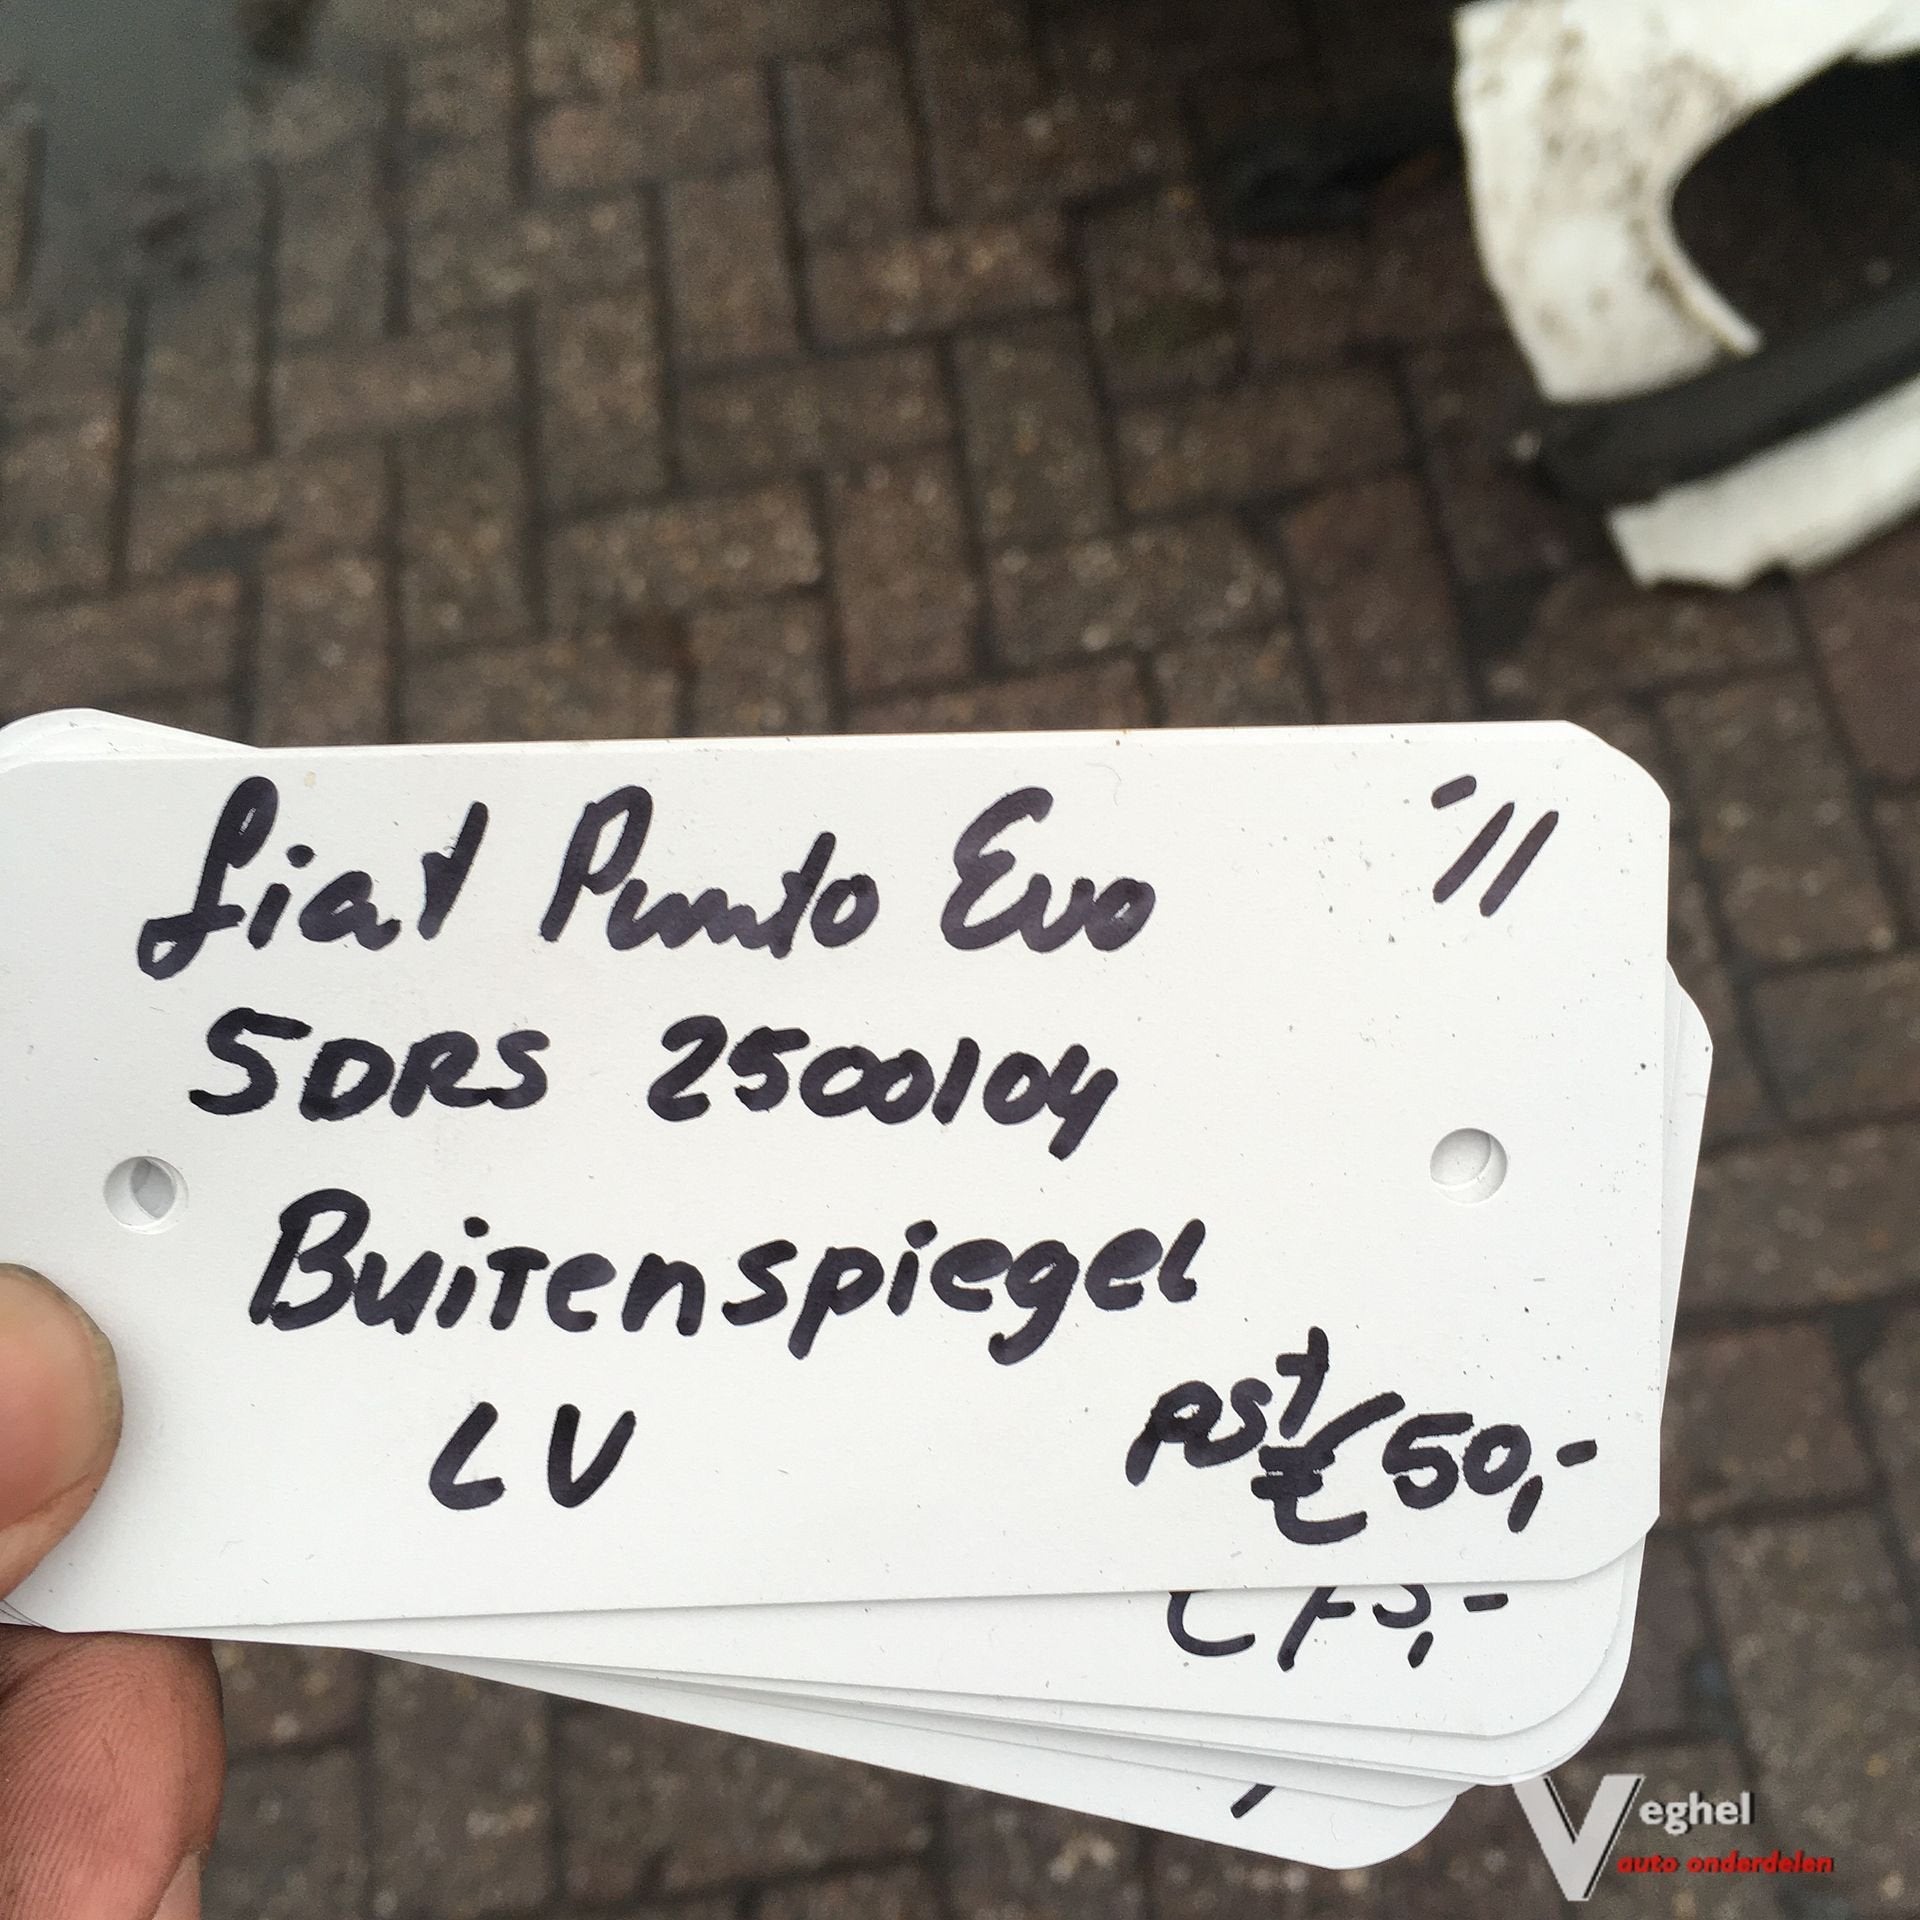 Fiat Punto Evo '11
5DRS 2500104
Buitenspiegel
LV
pst € 50,-
€ 75,-
Veghel
auto onderdelen